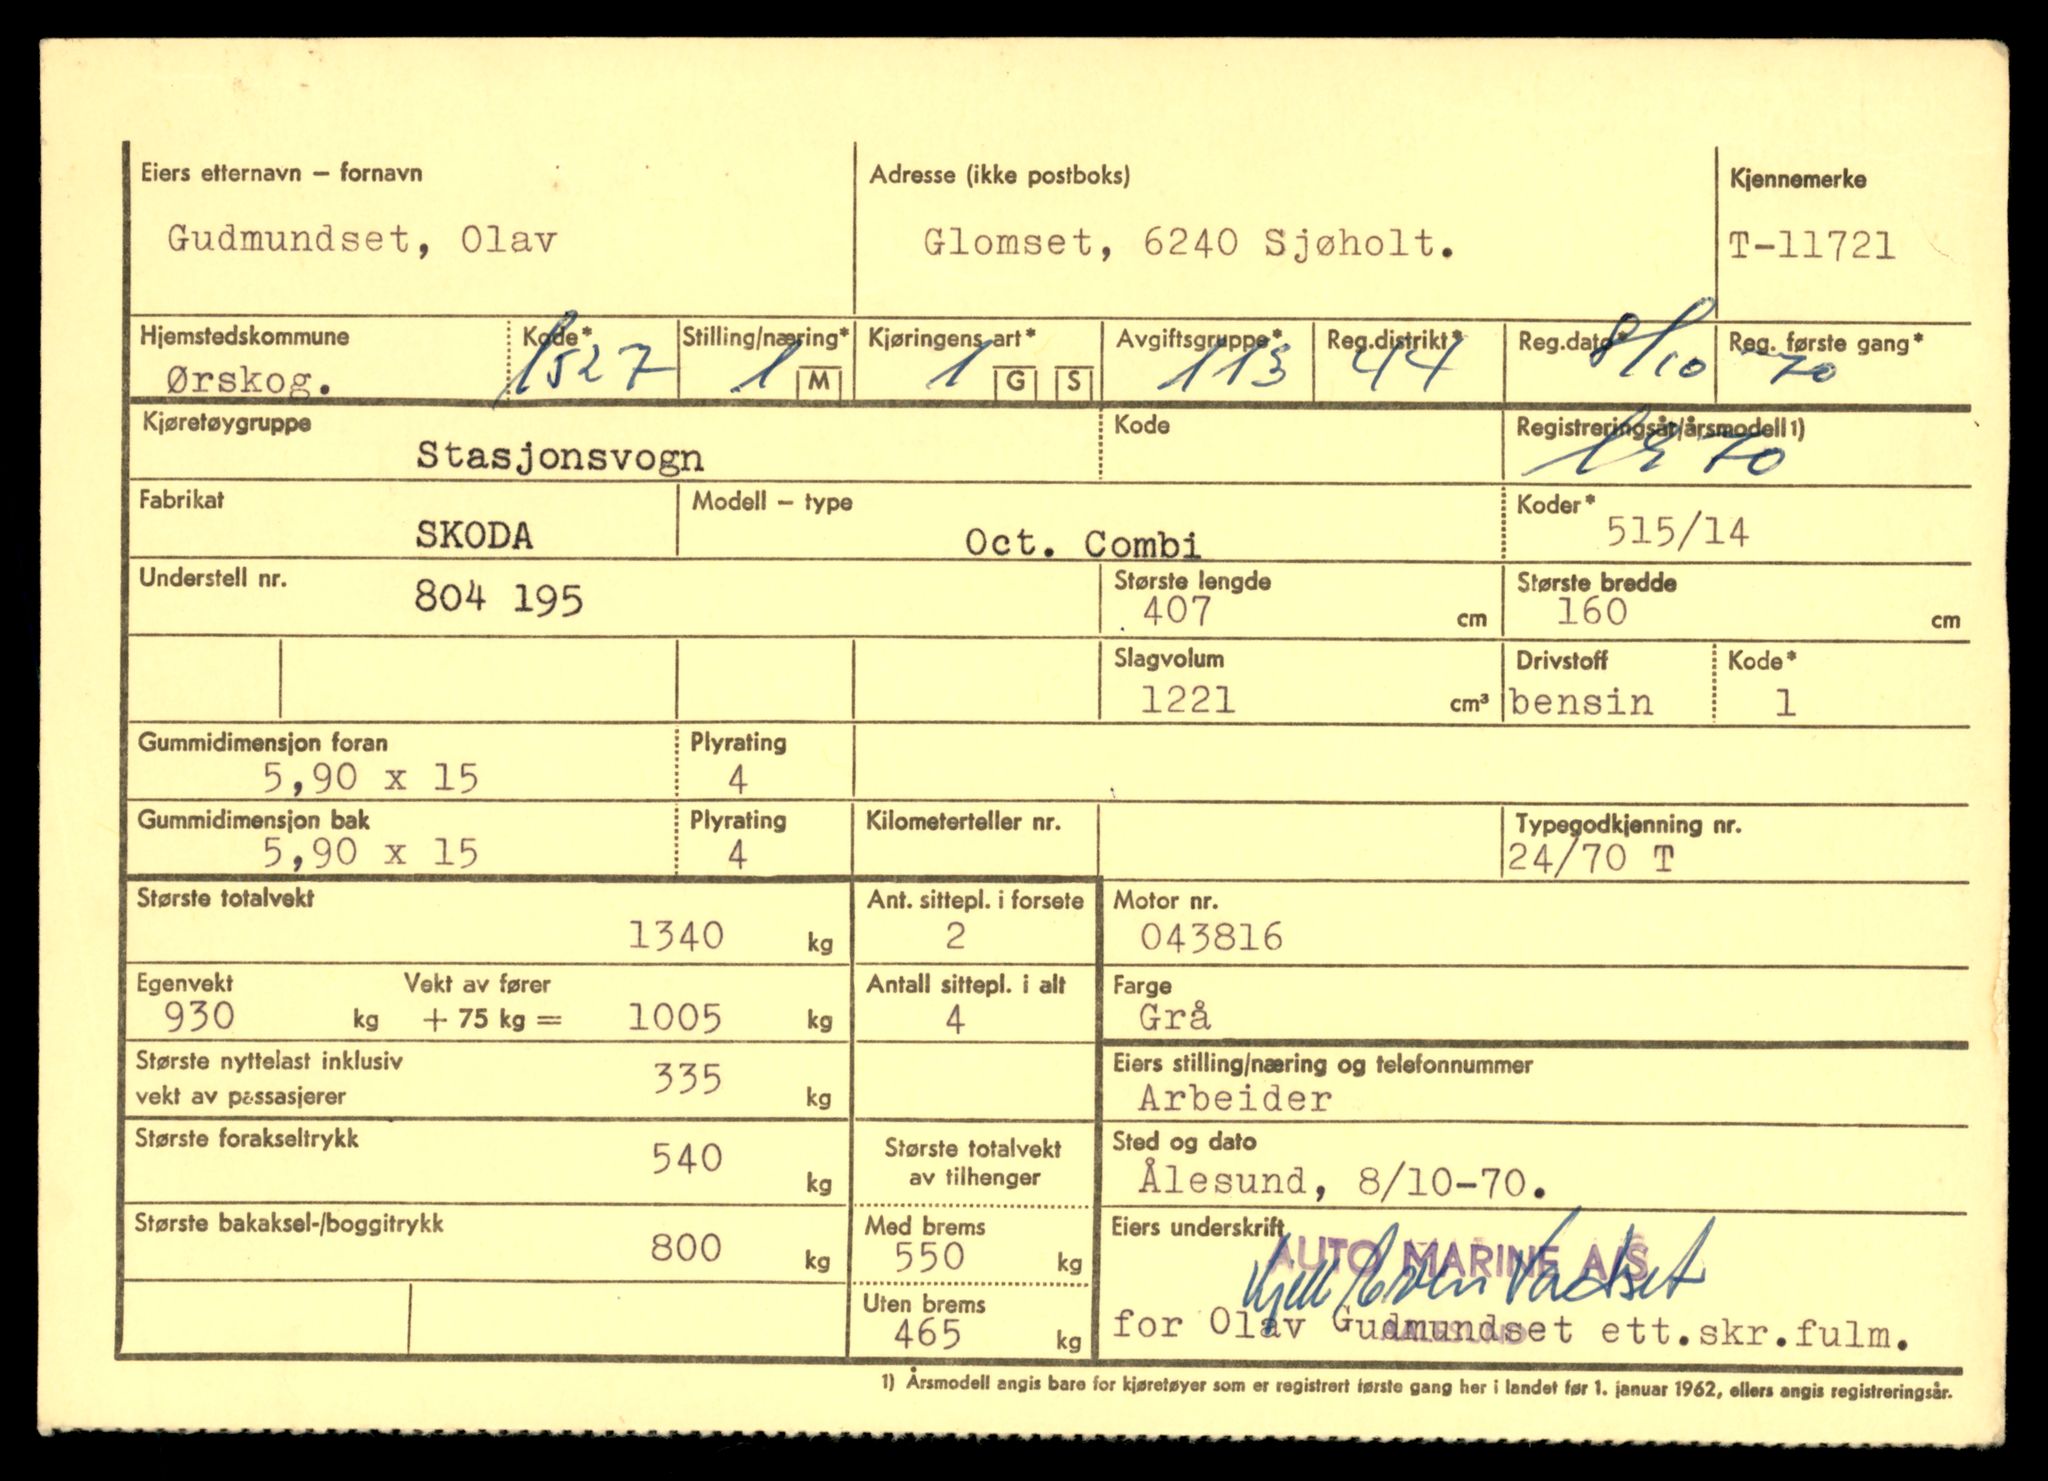 Eiers etternavn – fornavn Adresse (ikke postboks) Kjennemerke
Gudmundset, Olav Glomset, 6240 Sjøholt. T-11721
Hjemstedskommune Kode* Stilling/næring* Kjøringens art* Avgiftsgruppe* Reg.distrikt* Reg.dato* Reg. første gang*
Ørskog. 1527 1 M 1 G S 113 44 8/10 70
Kjøretøygruppe Kode Registreringsår/årsmodell 1)
Stasjonsvogn 1970
Fabrikat Modell – type Koder*
SKODA Oct. Combi 515/14
Understell nr. Største lengde Største bredde
804 195 407 cm 160 cm
Slagvolum Drivstoff Kode*
1221 cm³ bensin 1
Gummidimensjon foran Plyrating
5,90 x 15 4
Gummidimensjon bak Plyrating Kilometerteller nr. Typegodkjenning nr.
5,90 x 15 4 24/70 T
Største totalvekt Ant. sittepl. i forsete Motor nr.
1340 kg 2 043816
Egenvekt Vekt av fører Antall sittepl. i alt Farge
930 kg + 75 kg = 1005 kg 4 Grå
Største nyttelast inklusiv Eiers stilling/næring og telefonnummer
vekt av passasjerer 335 kg Arbeider
Største forakseltrykk Største totalvekt Sted og dato
540 kg av tilhenger Ålesund, 8/10-70.
Største bakaksel-/boggitrykk Med brems Eiers underskrift
800 kg 550 kg AUTO MARINE A/S
Uten brems Kjell
465 kg for Olav Gudmundset ett.skr.fulm.
1) Årsmodell angis bare for kjøretøyer som er registrert første gang her i landet før 1. januar 1962, ellers angis registreringsår.